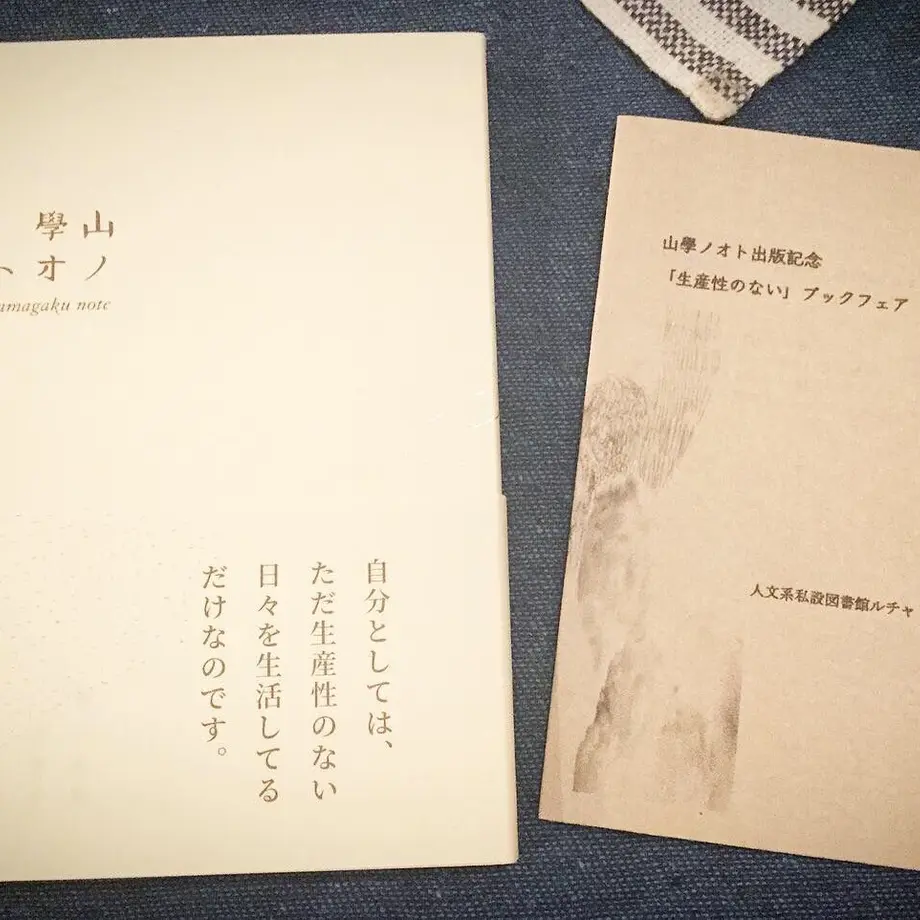 山學
ノオト
amagaku note
自分としては、
ただ生産性のない
日々を生活してる
だけなのです。
山學ノオト出版記念
「生産性のない」ブックフェア
人文系私設図書館ルチャ